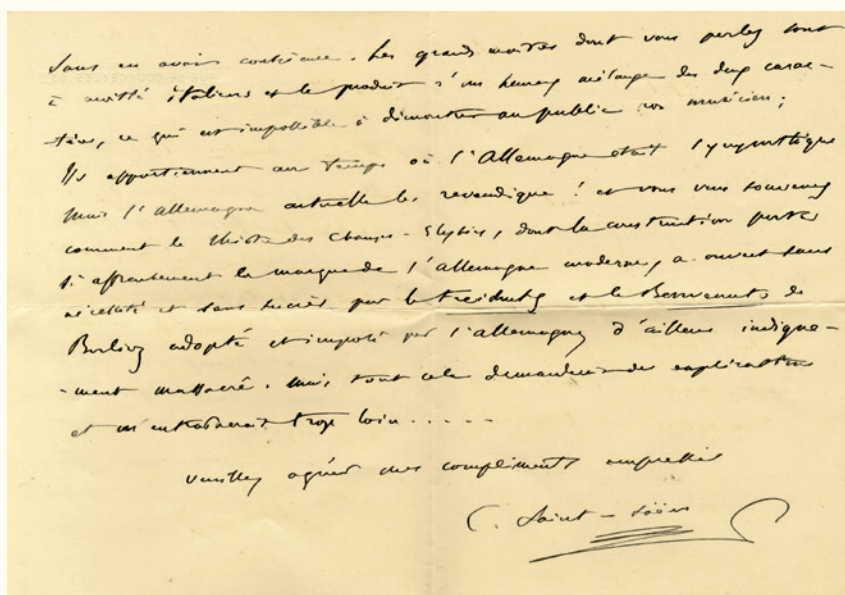 sans en avoir conscience. Les grands maîtres dont vous parlez sont
à moitié italiens et le produit d'un heureux mélange des deux carac-
tères, ce qui est impossible à démontrer au public non musicien;
Ils appartiennent au temps où l'Allemagne était sympathique
mais l'Allemagne actuelle les revendique! et vous vous souvenez
comment le théâtre des Champs-Elysées, dont la construction porte
si effrontément la marque de l'Allemagne moderne, a ouvert sans
nécessité et sans succès par le Freischütz et le Benvenuto de
Berlioz adopté et imposé par l'Allemagne, d'ailleurs indigne-
-ment massacré. Mais tout cela demanderait des explications
et m'entraînerait trop loin.....
veuillez agréer mes compliments empressés
C. Saint-Saëns